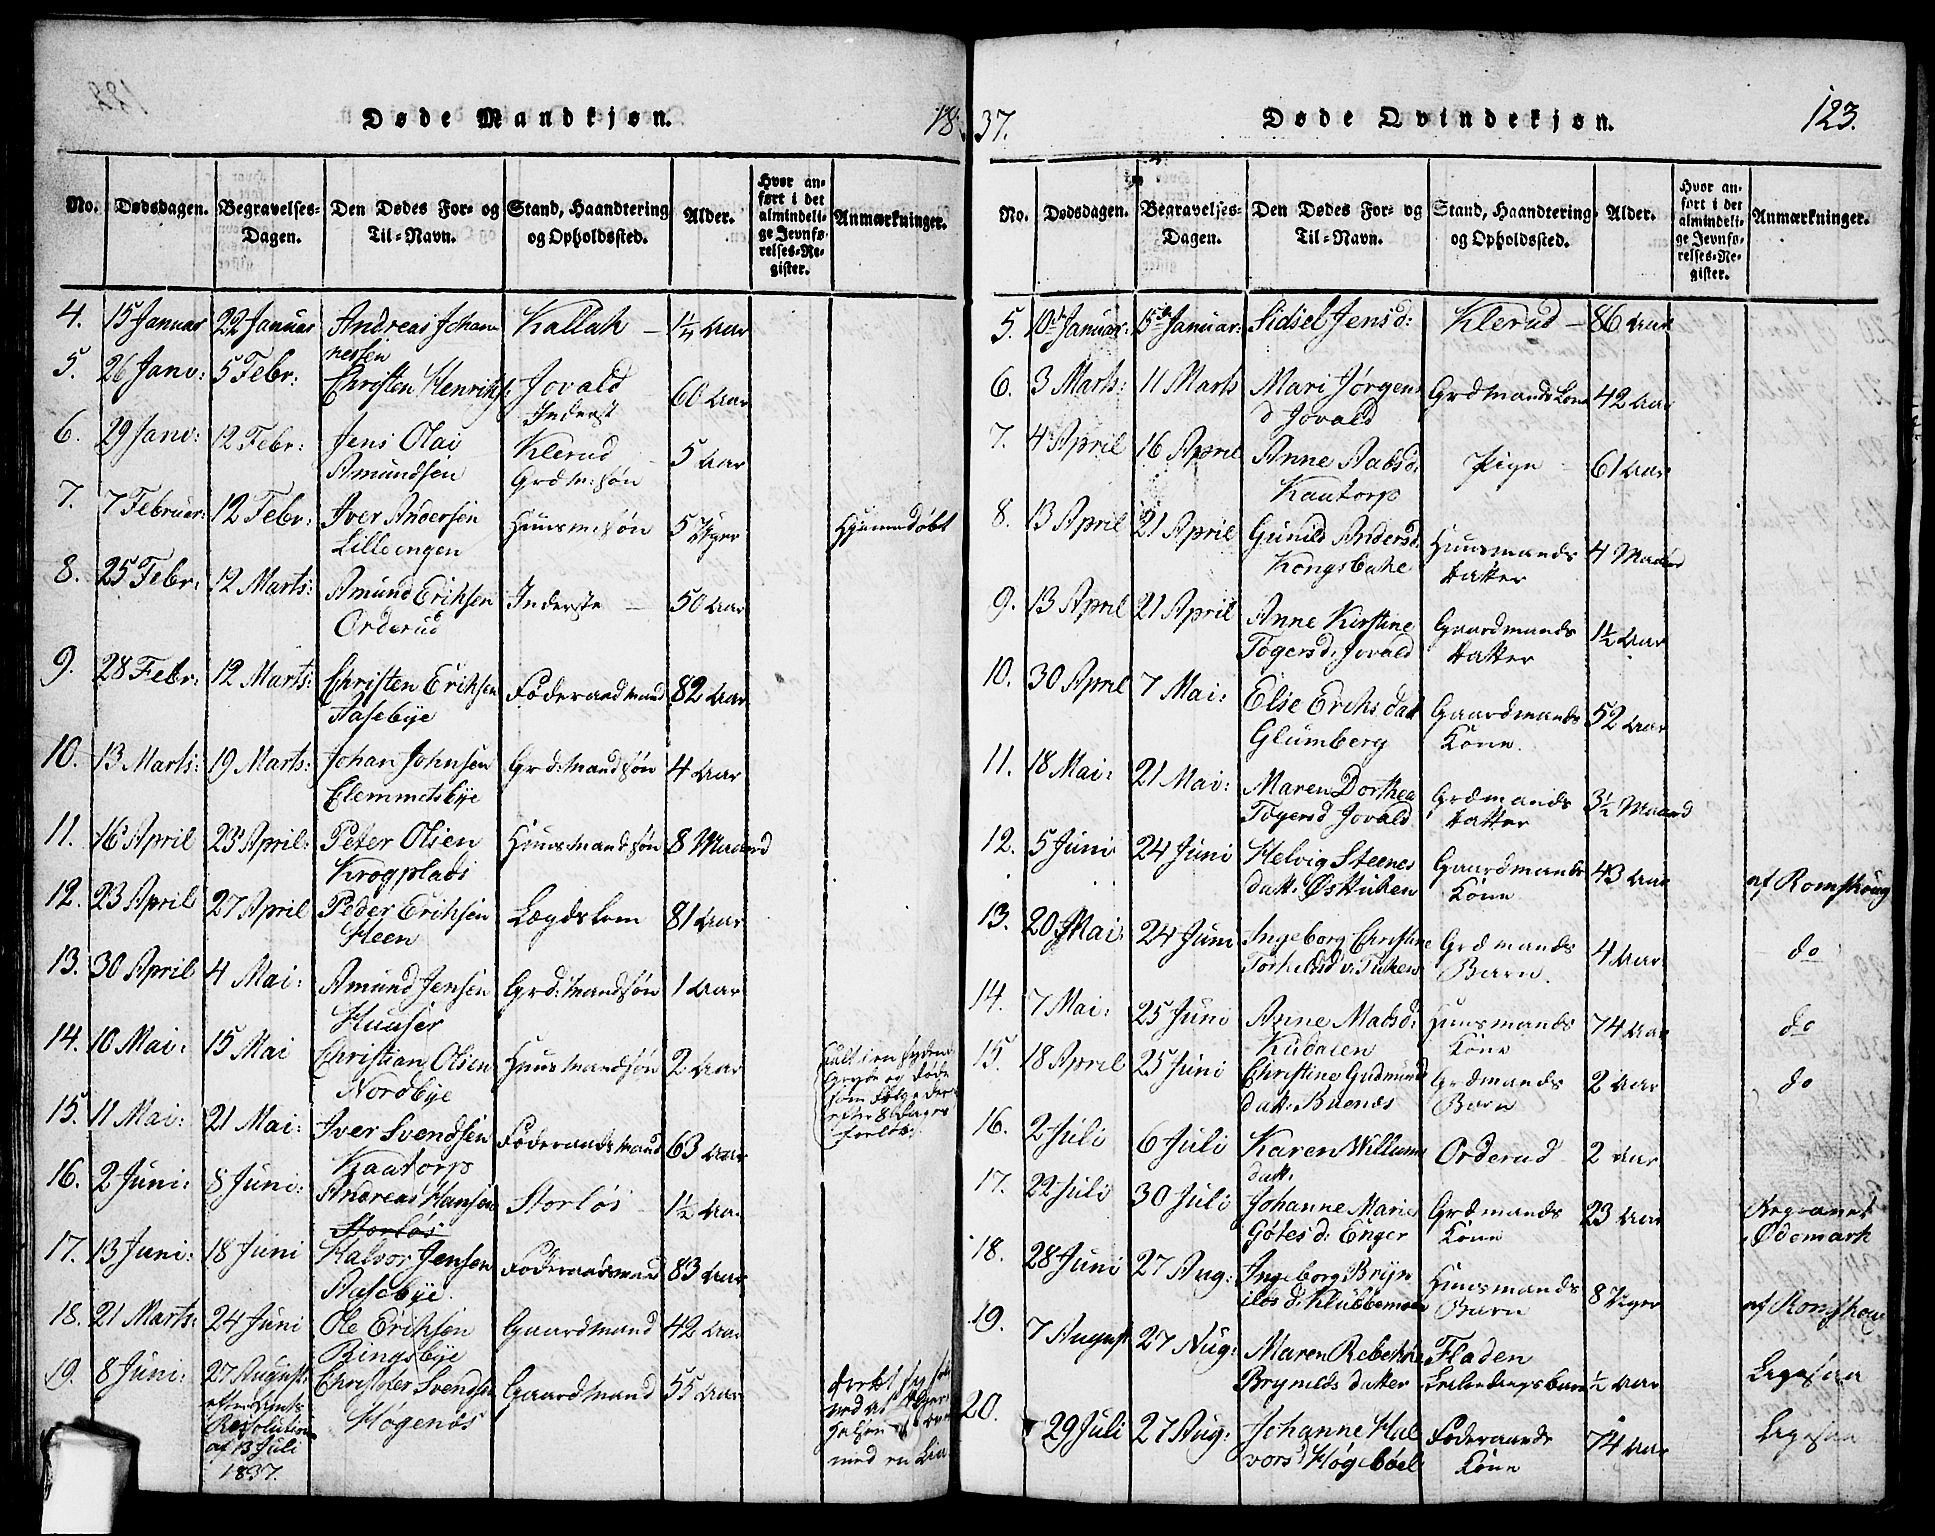 Døde Mandkjøn.
18
No.
Dødsdagen.
Begravelses-
Dagen.
Den Dødes For- og
Til-Navn.
Stand, Haandtering
og Opholdssted.
Alder.
Hvor an-
ført i det
almindeli-
ge Jevnfø-
relses-Re-
gister.
Anmærkninger.
4. 15 Januar 22 Januar Andreas Johan- Kallak 1/4 Aar
nesen
5. 26 Janv: 5 Febr: Christen Henriks: Jovald 60 Aar
Inderst
6. 29 Janv: 12 Febr: Jens Olai Klerud 5 Aar
Amundsen Grdm: søn
7. 7 Februar: 12 Febr: Iver Andersen Huusm: søn 5 Uger Hjemmedøbt
Lilleengen
8. 25 Febr: 12 Marts: Amund Eriksen Inderste 50 Aar
Orderud
9. 28 Febr: 12 Marts: Christen Eriksen Føderaadmand 82 Aar
Aasebye
10. 13 Marts: 19 Marts: Johan Johnsen Grd: mandsøn 4 Aar
Clemmetsbye
11. 16 April 23 April: Peter Olsen Huusmandsøn 8 Maaned
Krogplads
12. 23 April 27 April Peder Eriksen Lægdslem 81 Aar
Heen
13. 30 April 4 Mai: Amund Jensen Grd: mandsøn 1 Aar
Huuser
14. 10 Mai: 15 Mai Christian Olsen Huusmandsøn 2 Aar
Nordbye
Faldt i en sydende
Gryde og døde
som Følge der-
efter 8 Dages
Forløb.
15. 11 Mai: 21 Mai: Iver Svendsen Føderaadsmand 63 Aar
Kaatorp
16. 2 Juni: 8 Juni: Andreas Hansen Storløs 1½ Aar
Storløs
17. 13 Juni: 18 Juni Halvor Jensen Føderaadsmand 83 Aar
Aasebye.
18. 21 Marts: 24 Juni Ole Eriksen Gaardmand 42 Aar
Ringsbye
19. 8 Juni: 27 August: Christofer Svendsen Gaardmand 55 Aar
efter Amts Høgenæs
Resolution
af 13 Juli
1837.
ved at
med en
37.
Døde Qvindekjøn.
123.
No.
Dødsdagen.
Begravelses-
Dagen.
Den Dødes For- og
Til-Navn.
Stand, Haandtering
og Opholdssted.
Alder.
Hvor an-
ført i det
almindeli-
ge Jevnfø-
relses-Re-
gister.
Anmærkninger.
5. 10 Januar: 15 Januar: Sidsel Jensd: Klerud 86 Aar
6. 3 Marts: 11 Marts Mari Jørgens Grdmands Kone 42 Aar
d Jovald
7. 4 April 16 April Anne Aabsd: Pige 61 Aar
Kaatorp
8. 13 April 21 April Gunild Andersd: Huusmands 4 Maaned
Kongsbakke Datter
9. 13 April 21 April Anne Kirstine Gaardmands 1½ Aar
Tøgersd: Jovald Datter
10. 30 April 7 Mai: Else Eriksdatt Gaardmands 52 Aar
Glumberg Kone.
11. 18 Mai: 21 Mai: Maren Dorthea Grdmands 3½ Maaned
Tøgersd Jovald Datter
12. 5 Juni 24 Juni Helvig Steenes Gaardmands 43 Aar af Romskoug
datt: Østtuken Kone
13. 20 Mai: 24 Juni Ingeborg Christine Grdmands 4 Aar do
Torkelsd v. Tuken Barn.
14. 7 Mai: 25 Juni Anne Madsd: Huusmands 74 Aar do
Kudalen Kone
15. 18 April 25 Juni Christine Gudmund Grdmands 2 Aar do
datt: Buenæs Barn
16. 2 Juli 6 Juli Karen Willums Orderud 2 Aar
datt:
17. 22 Juli 30 Juli Johanne Marie Grdmands 23 Aar Begravet
Gøtesd: Enger Kone Ødemark
18. 28 Juni 27 Aug: Ingeborg Bryn Huusmands 8 Uger af Romskoug
ilds d: Klubbemoen Barn
19. 7 August 27 Aug: Maren Rebekke Fladen ½ Aar Ligesaa
Brynilds datter
20. 29 Juli 27 Aug: Johanne Hal Føderaads 74 Aar Ligesaa
vorsd Høgebøel Kone